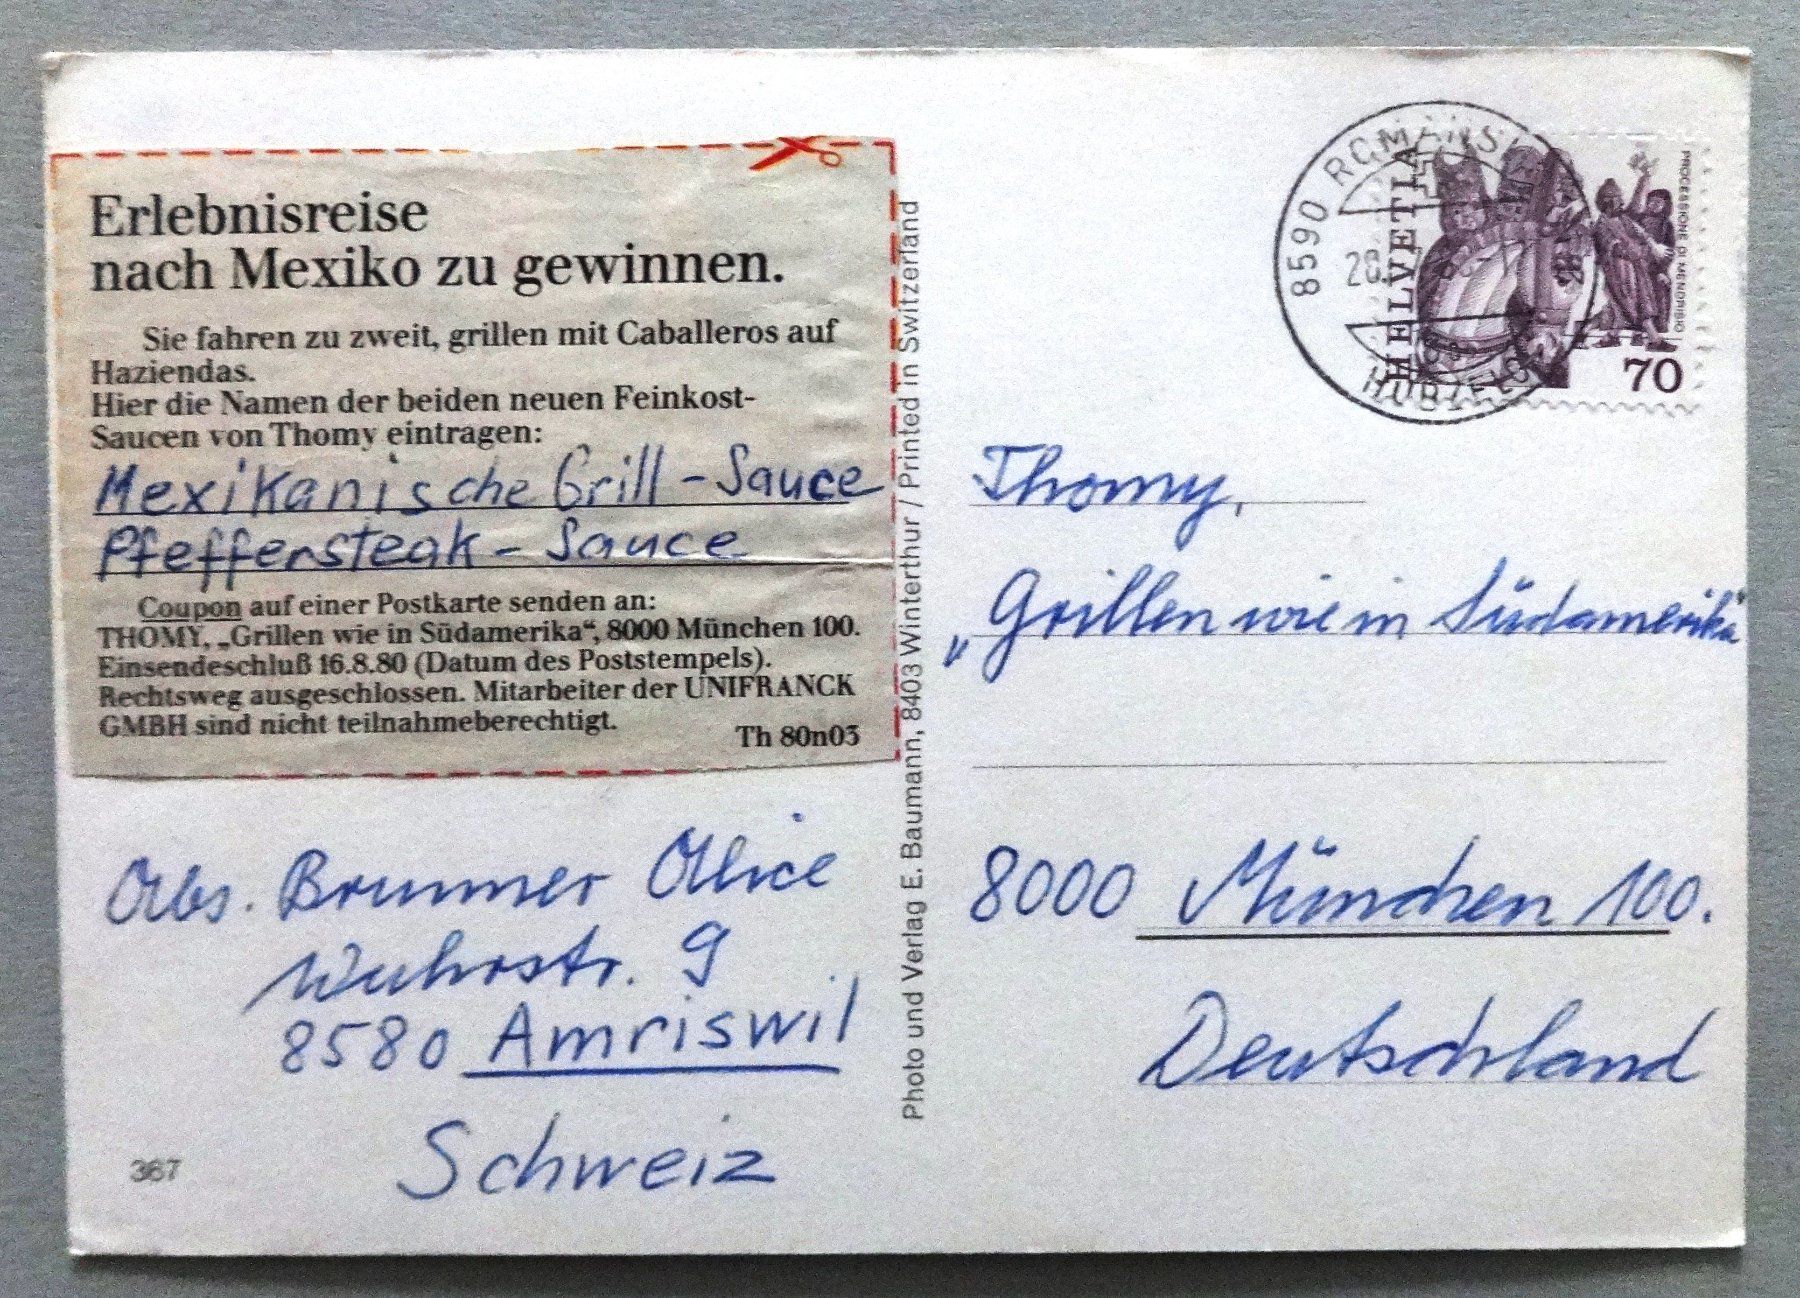 Erlebnisreise
nach Mexiko zu gewinnen.
Sie fahren zu zweit, grillen mit Caballeros auf
Haziendas.
Hier die Namen der beiden neuen Feinkost-
Saucen von Thomy eintragen:
Mexikanische Grill-Sauce
Pfeffersteak-Sauce
Coupon auf einer Postkarte senden an:
THOMY, „Grillen wie in Südamerika“, 8000 München 100.
Einsendeschluß 16.8.80 (Datum des Poststempels).
Rechtsweg ausgeschlossen. Mitarbeiter der UNIFRANCK
GMBH sind nicht teilnahmeberechtigt.
Th 80n03
Abs. Brunner Alice
Wuhrstr. 9
8580 Amriswil
Schweiz
367
Photo und Verlag E. Baumann, 8403 Winterthur / Printed in Switzerland
8590 ROMANS
HELVETIA
PROCESSIONE DI MENDRISIO
70
Thomy,
„Grillen wie in Südamerika“
8000 München 100.
Deutschland